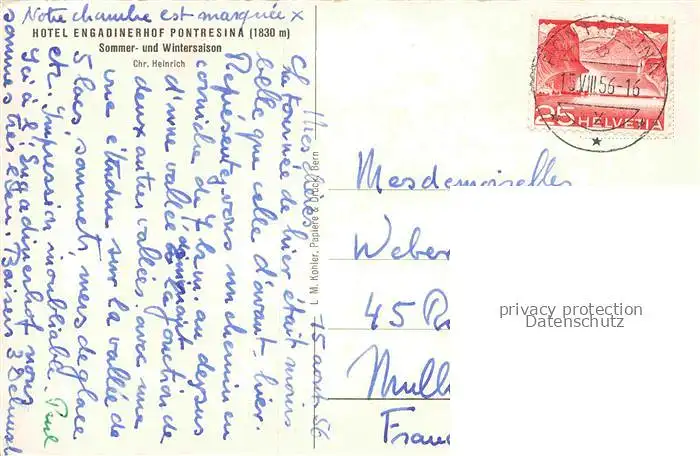 Notre chambre est marquée x
HOTEL ENGADINERHOF PONTRESINA (1830 m)
Sommer- und Wintersaison
Chr. Heinrich
15 août 56
Mes chères
La tournée de hier était moins
belle que celle d'avant-hier.
Représentez vous un chemin en
corniche de 7 km. au dessus
d'une vallée dominant la jonction de
deux autres vallées avec une
vue étendue sur la vallée de
5 lacs, sommets, mers de glace
etc. Impression inoubliable. Paul
Ici à l'Engadinerhof nous
sommes très bien. Baisers
L. M. Kohler, Papiere & Druck, Bern
15.VIII.56-16
25 HELVETIA
Mesdemoiselles
Weber
45
Mulh
Franc
privacy protection
Datenschutz